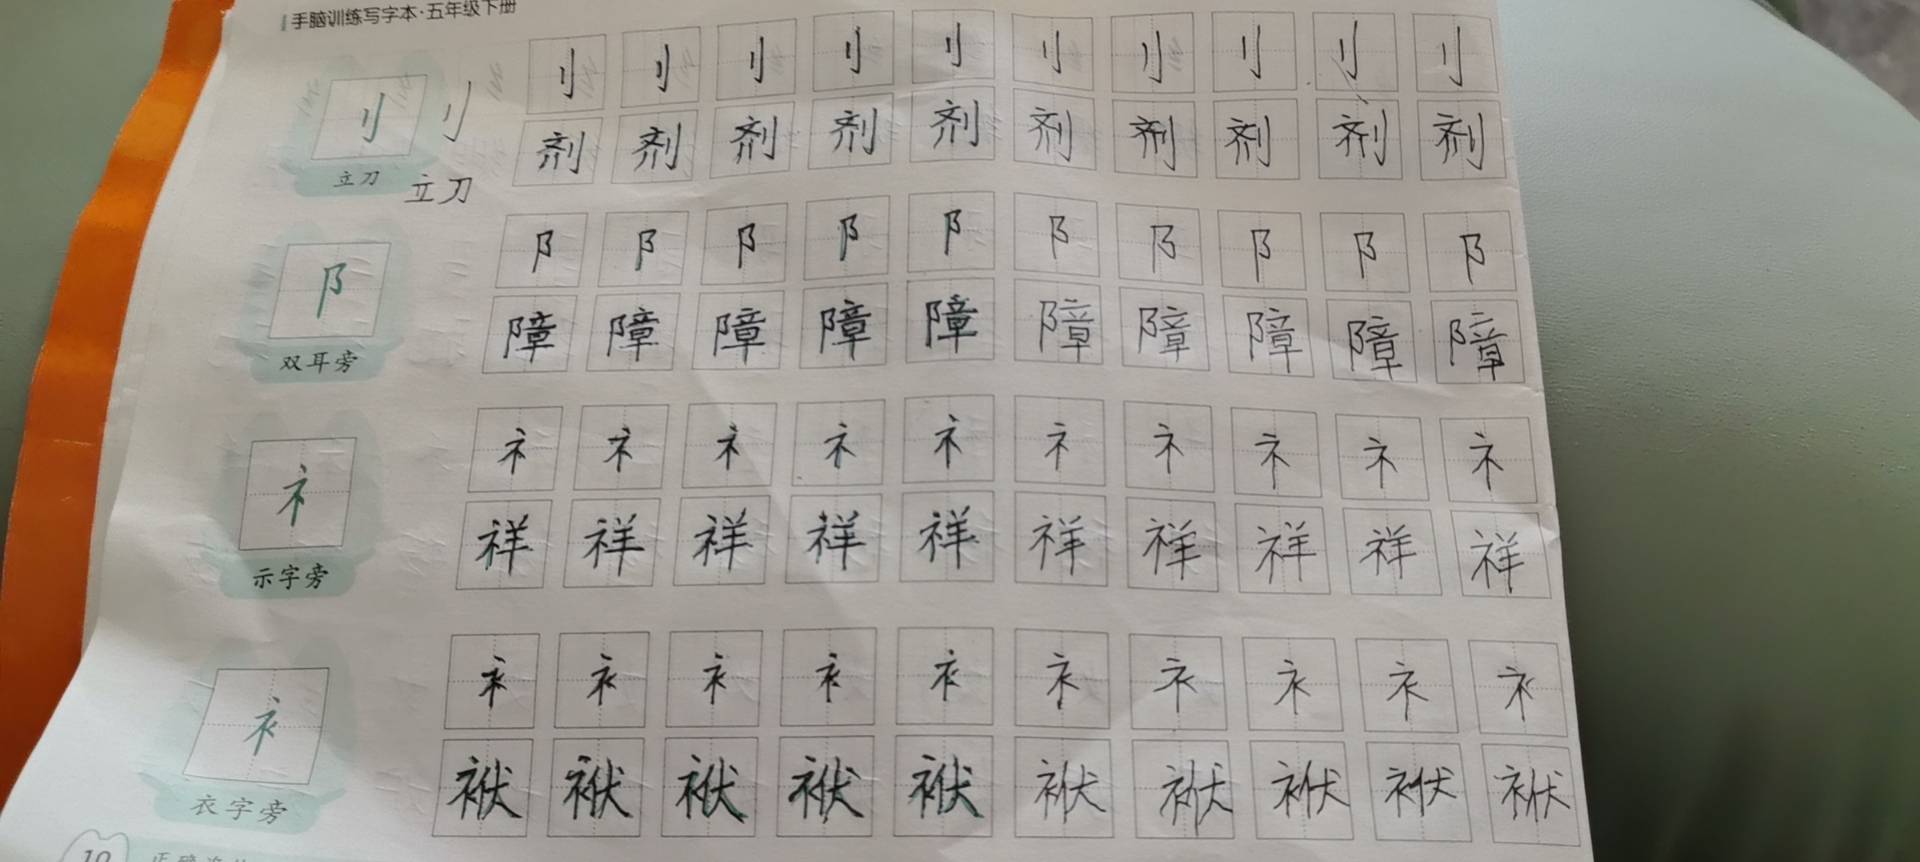 手脑训练写字本·五年级下册
刂 刂 刂 刂 刂 刂 刂 刂 刂 刂 刂 刂
剂 剂 剂 剂 剂 剂 剂 剂 剂 剂
立刀 立刀
阝 阝 阝 阝 阝 阝 阝 阝 阝 阝 阝
障 障 障 障 障 障 障 障 障 障
双耳旁
礻 礻 礻 礻 礻 礻 礻 礻 礻 礻 礻
祥 祥 祥 祥 祥 祥 祥 祥 祥 祥
示字旁
衤 衤 衤 衤 衤 衤 衤 衤 衤 衤 衤
袱 袱 袱 袱 袱 袱 袱 袱 袱 袱
衣字旁
10